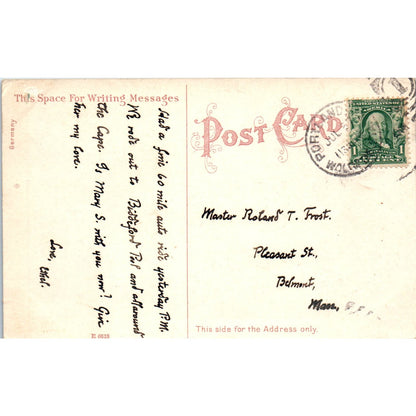 This Space For Writing Messages
Had a fine 60 mile auto ride yesterday P.M.
We rode out to Biddeford Pool and all around
the Cape. Is Mary S. with you now? Give
her my love.
Love,
Ethel.
Germany
E 6838
POST CARD
PORTLAND
UNITED STATES
1
Master Roland T. Frost.
Pleasant St.,
Belmont,
Mass.
This side for the Address only.